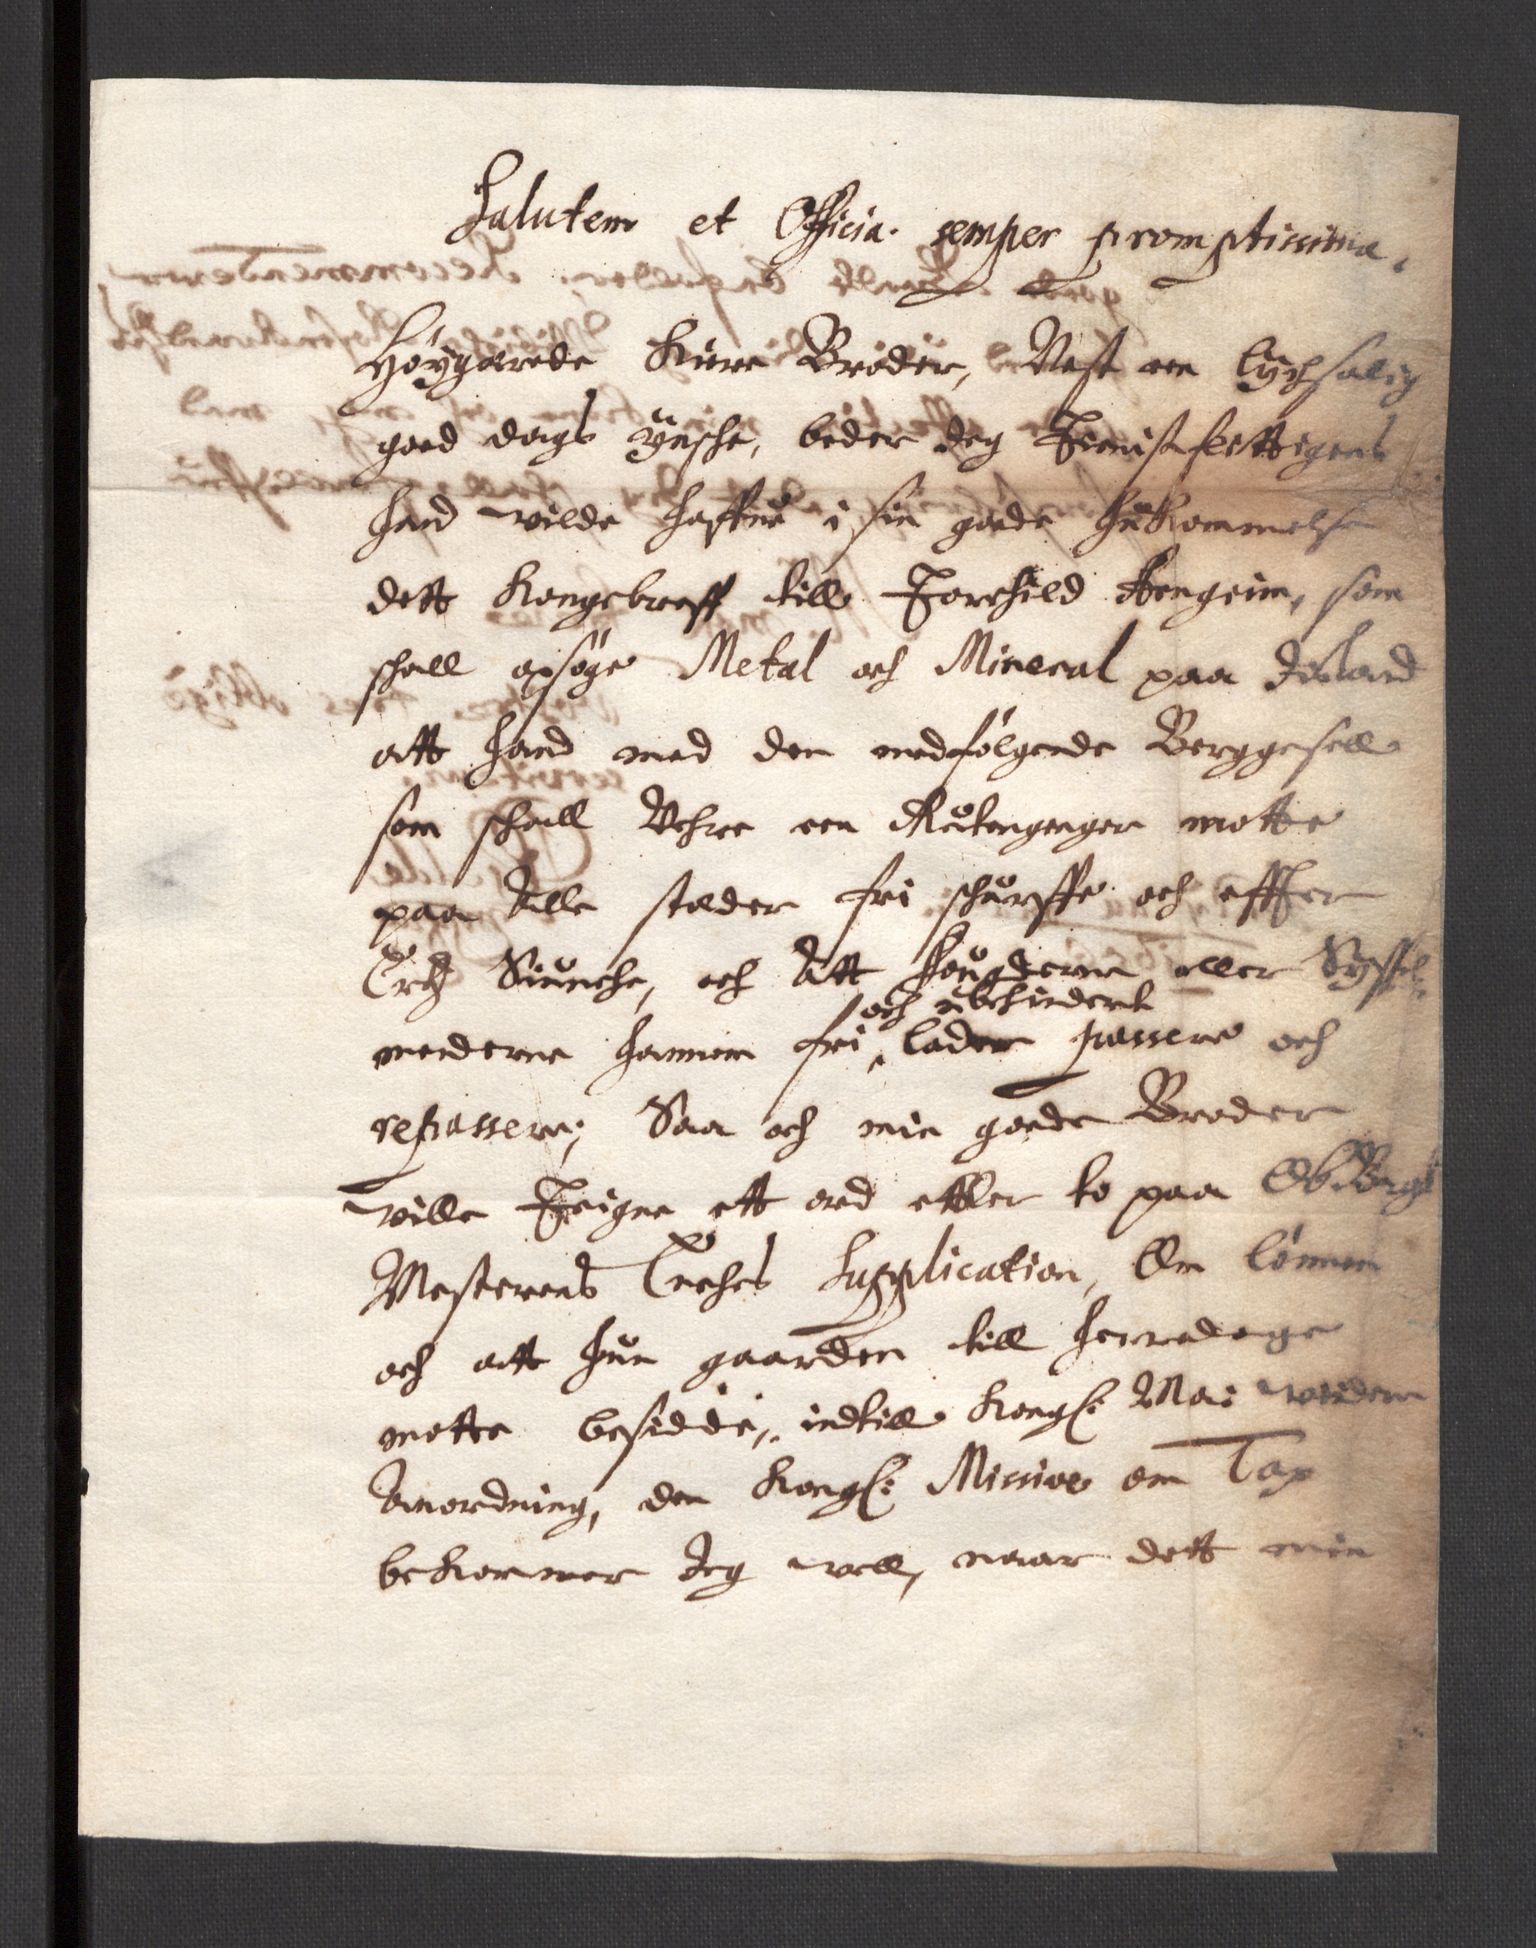 Salutem et Officia semper promptissima,
Höygærede Kiere Broder, Nest een lychsalig
goed dags ÿnsche, beder Jeg Tienistflittigens
hand wilde haffue i sin goede hukommelse
dett Kongebreff till Torchild Arngrim, som
schall opsöge Metal och Mineral paa Island
att hand med den medfölgende Berggesell
som schall Vehre een Rutengenger motte
paa Alle stæder fri schurffe och effter
Ertz Siunche, och Att fougderne eller Syssel-
menderne hannem fri och ubehindert lader passere och
repassere; Saa och min goede Broder
wille Teigne ett ord eller to paa Ob. Berg
Mesterens Enches Supplication, Om Lönnen
och att hun gaarden till herredage
motte besidde, indtill Kongl: Mai: widere
Anordning, den Kongl: Missive om Tax
bekommer Jeg well, naar dett min